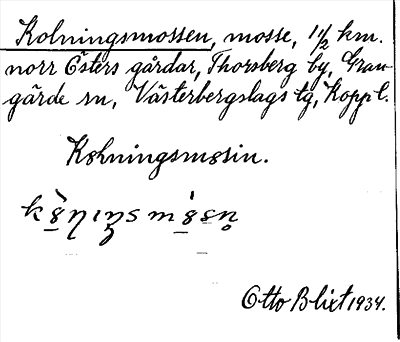 Kolningsmossen, mosse, 1 1/2 km.
norr Östers gårdar, Thorsberg by, Gran-
gärde sn, Västerbergslags tg, Koppl.
Kølningsmøsin.
Otto Blixt 1934.